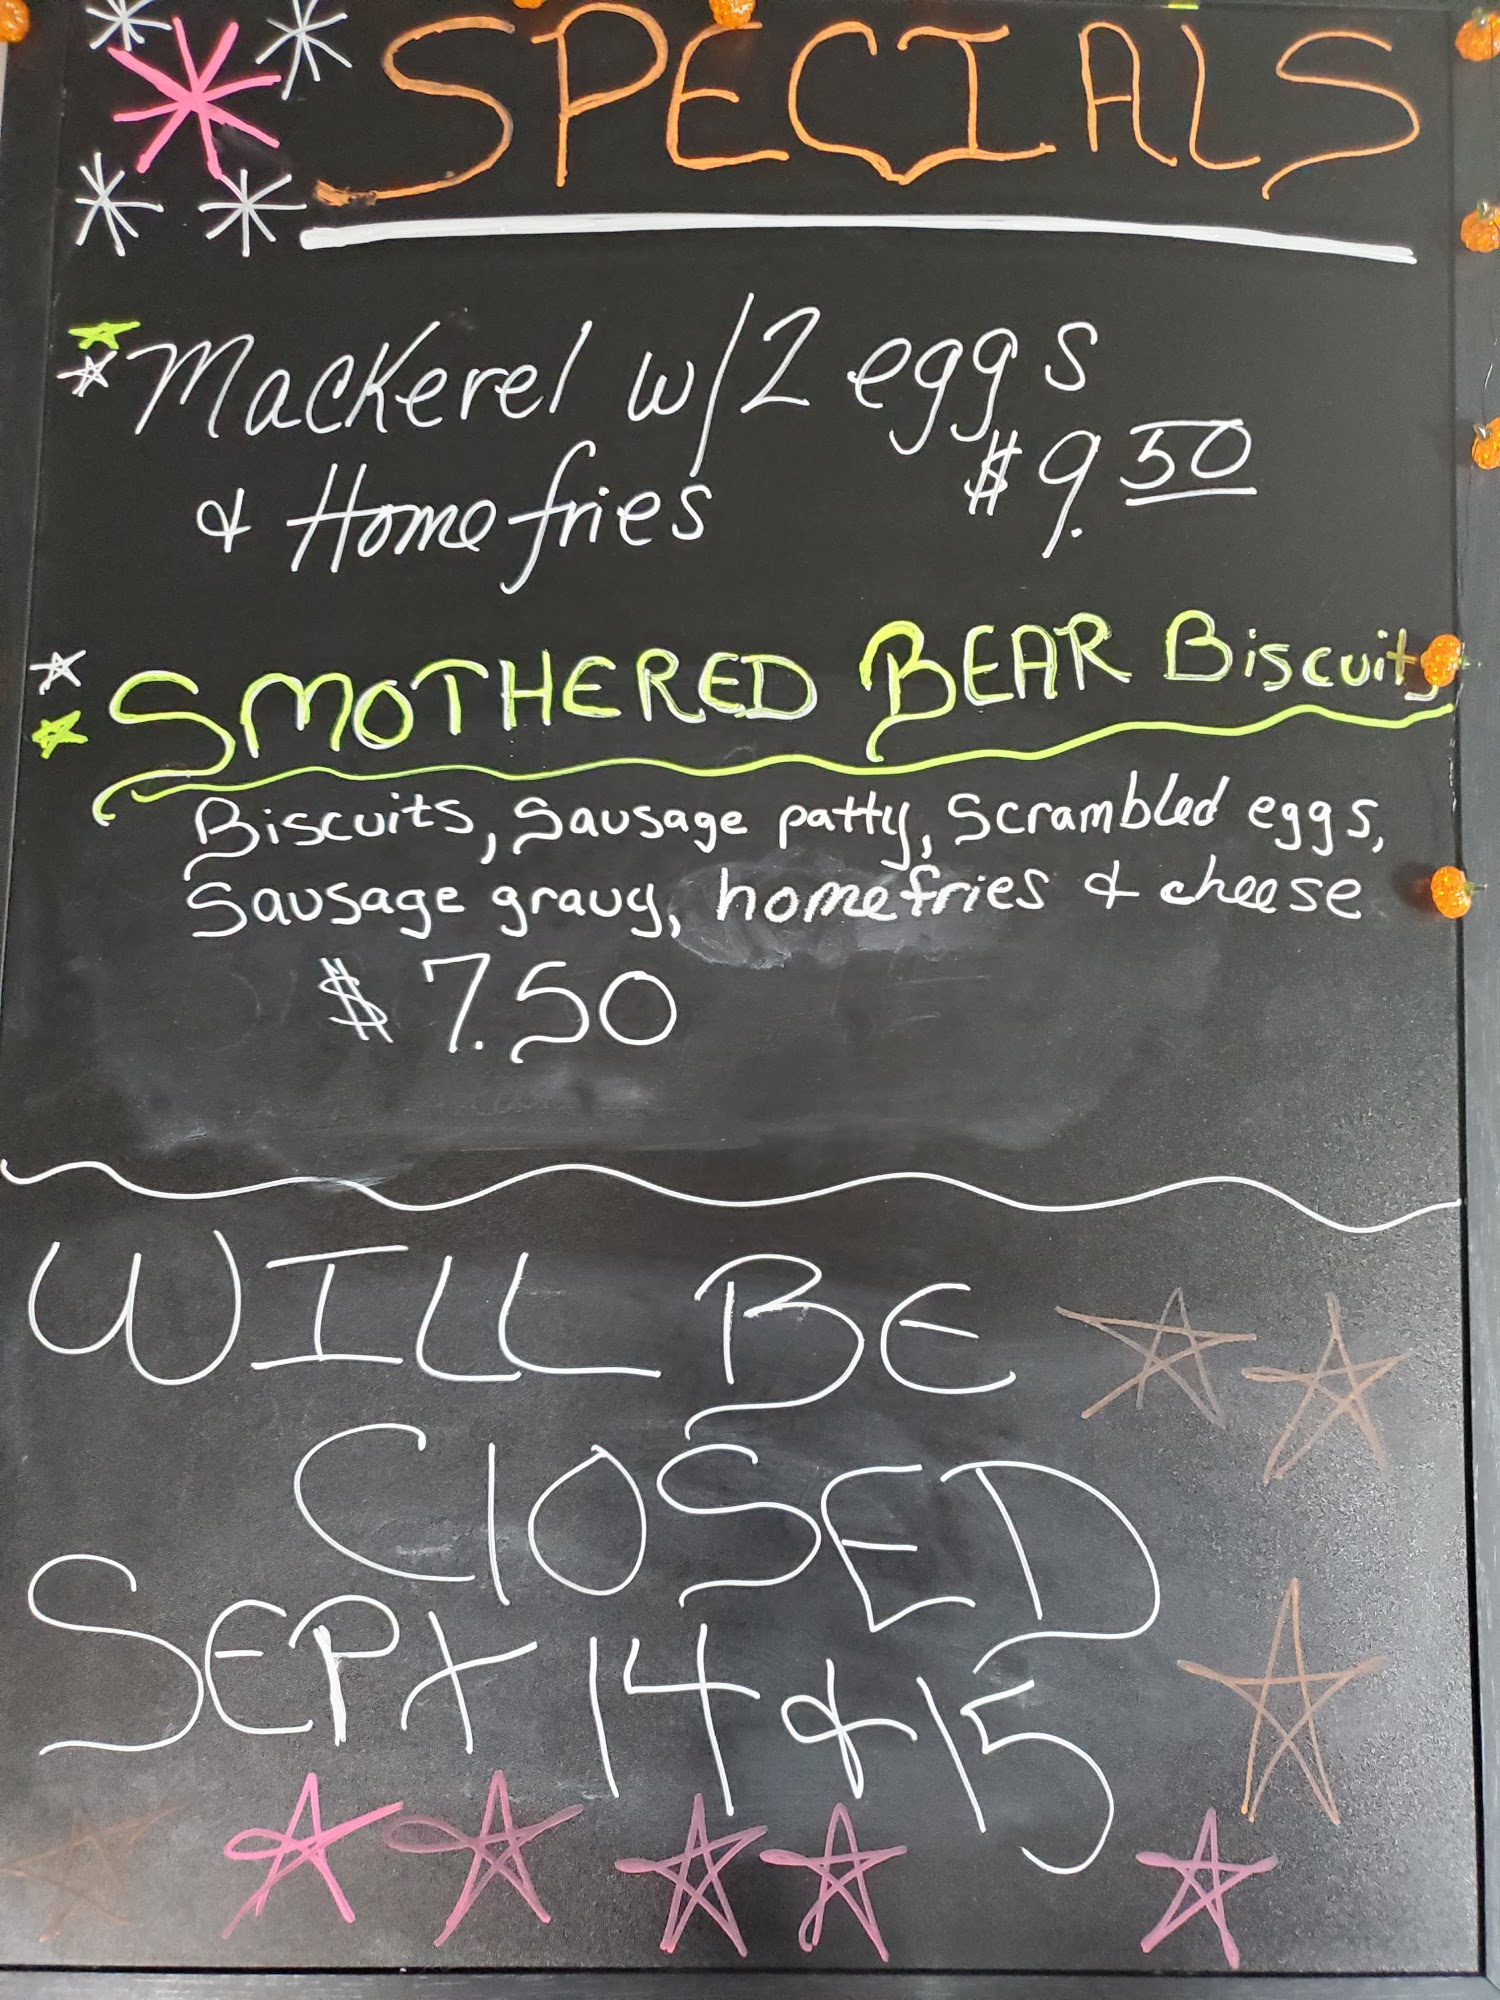 SPECIALS
Mackerel w/2 eggs
& Home fries $9.50
SMOTHERED BEAR Biscuits
Biscuits, Sausage patty, Scrambled eggs,
Sausage gravy, homefries & cheese
$7.50
WILL BE
ClOSED
SEPt 14 & 15